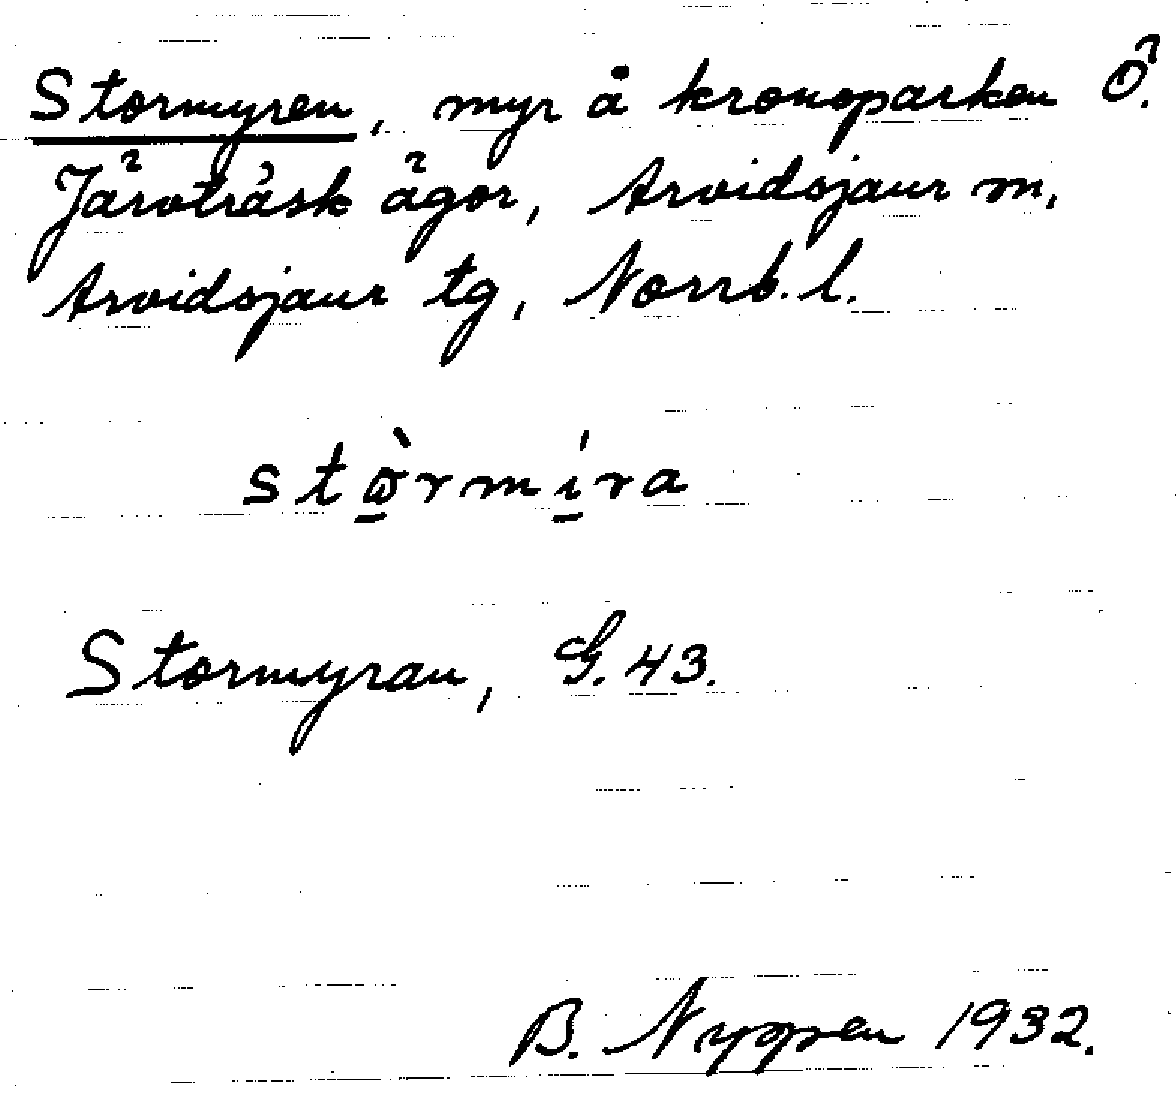 Stormyren, myr å kronoparken Ö.
Järvträsk ägor, Arvidsjaur m,
Arvidsjaur tg, Norrb. l.
stὼ̱rmí̱ra
Stormyran, G. 43.
B. Nyppen 1932.